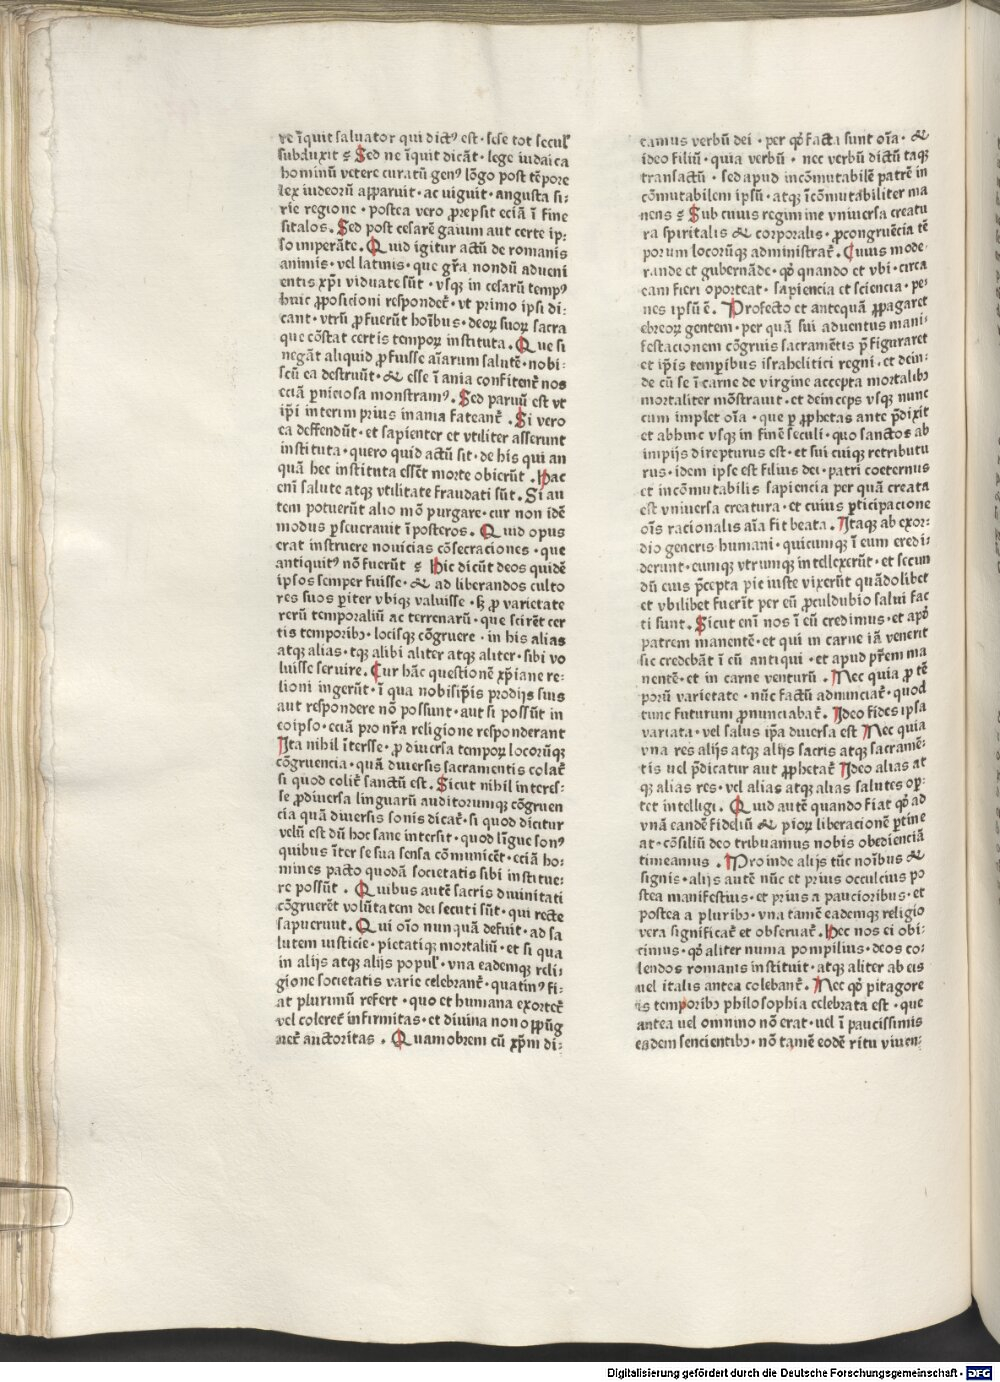 re īquit saluator qui dictꝰ est · sese tot seculꝭ
subduxit ꝫ Sed ne īquit dicāt · lege iudaica
hominū vetere curatū genꝰ lōgo post tēpore
lex iudeorū apparuit · ac uiguit · angusta si⸗
rie regione · postea vero ꝓrepsit eciā ī fine
sitalos . Sed post cesarē gaium aut certe ip⸗
so imperāte . Quid igitur actū de romanis
animis · vel latinis · que gr̄a nondū adueni
entis xp̄i viduate sūt · vsqꝫ in cesarū tempꝰ
huic ꝓposicioni respondet᷑ · vt primo ipsi di⸗
cant · vtrū ꝓfuerūt hoībus · deoꝝ suoꝝ sacra
que cōstat certis tempoꝝ instituta . Que si
negāt aliquid ꝓfuisse aīarum salutē · nobi⸗
scū ea destruūt · & esse ī ania confitent᷑ nos
eciā ꝑniciosa monstramꝰ . Sed parum̄ est vt
ip̄i interim prius inania fateant᷑ . Si vero
ea deffendūt · et sapienter et vtiliter asserunt
instituta · quero quid actū sit · de his qui an
quā hec instituta essēt morte obierūt . Hac
enī salute atqꝫ vtilitate fraudati sūt . Si au
tem potuerūt alio mō purgare · cur non idē
modus ꝑseuerauit īposteros . Quid opus
erat instruere nouicias cōsecraciones · que
antiquitꝰ nō fuerūt ꝫ Hic dicūt deos quidē
ipsos semper fuisse · & ad liberandos culto
res suos ꝑiter vbiqꝫ valuisse · sꝫ ꝓ varietate
rerū temporaliū ac terrenarū · que scirēt cer
tis temporibꝫ · locisqꝫ cōgruere · in his alias
atqꝫ alias · tqꝫ alibi aliter atqꝫ aliter · sibi vo
luisse seruire . Cur hāc questionē xp̄iane re⸗
lioni ingerūt · ī qua nobisip̄is prodijs suis
aut respondere nō possunt · aut si possūt in
eoipso · eciā pro nr̄a religione responderant
Ita nihil ītersse · ꝓ diuersa tempoꝝ locorūqꝫ
cōgruencia · quā diuersis sacramentis colat᷑
si quod colit᷑ sanctū est . Sicut nihil interes⸗
se ꝓdiuersa linguarū auditorumqꝫ cōgruen
cia quā diuersis sonis dicat᷑ · si quod dicitur
velū est dū hoc sane intersit · quod līgue sonꝰ
quibus īter se sua sensa cōmunicēt · eciā ho⸗
mines pacto quodā societatis sibi institue⸗
re possūt . Quibus autē sacris diuinitati
cōgruerēt volūtatem dei secuti sūt · qui recte
sapuerunt . Qui oīo nunquā defuit · ad sa
lutem iusticie · pietatiqꝫ mortaliū · et si qua
in alijs atqꝫ alijs populꝭ · vna eademqꝫ reli⸗
gione societatis varie celebrant᷑ · quatinꝰ fi⸗
at plurimū refert · quo et humana exortet᷑
vel coleret᷑ infirmitas · et diuina non oppūg
net᷑ auctoritas . Quamobrem cū xp̄m di⸗
camus verbū dei · per qđ facta sunt oīa · &
ideo filiū · quia verbū · nec verbū dictū taqꝫ
transactū · sed apud incōmutabilē patrē in
cōmutabilem ipsū · atqꝫ īcōmutabiliter ma
nens ꝫ Sub cuius regimine vniuersa creatu
ra spiritalis & corporalis · ꝓcongruēcia tē
porum locorūqꝫ administrat᷑ . Cuius mode⸗
rande et gubernāde · qđ quando et vbi · circa
eam fieri oporteat · sapiencia et sciencia · pe⸗
nes ipsū ē . Profecto et antequā ꝓpagaret
ebreoꝝ gentem · per quā sui aduentus mani⸗
festacionem cōgruis sacramētis p̄figuraret
et ip̄is temꝑibus israhelitici regni · et dein⸗
de cū se ī carne de virgine accepta mortalibꝫ
mortaliter mōstrauit · et deinceps vsqꝫ nunc
cum implet oīa · que ꝑ ꝓphetas ante p̄dixit
et abhinc vsqꝫ in finē seculi · quo sanctos ab
impijs direpturus est · et sui cuiqꝫ retributu
rus · idem ipse est filius dei · patri coeternus
et incōmutabilis sapiencia per quā creata
est vniuersa creatura · et cuius ꝑticipacione
oīs racionalis aīa fit beata . Itaqꝫ ab exor⸗
dio generis humani · quicumqꝫ ī eum eredi⸗
derunt · eumqꝫ vtrumqꝫ intellexerūt · et secun
dū eius p̄cepta pie iuste vixerūt quādolibet
et vbilibet fuerīt per eū ꝓculdubio salui fac
ti sunt . Sicut enī nos ī eū credimus · et apđ
patrem manentē · et qui in carne iā venerit
sic credebāt ī eū antiqui · et apud pr̄em ma
nentē · et in carne venturū . Nec quia ꝓ tē
porū varietate · nūc factū adnunciat᷑ · quod
tunc futurum ꝓnunciabat᷑ . Ideo fides ipsa
variata · vel salus ip̄a diuersa est Nec quia
vna res alijs atqꝫ alijs sacris atqꝫ sacramē⸗
tis uel p̄dicatur aut ꝓphetat᷑ Ideo alias at
qꝫ alias res · vel alias atqꝫ alias salutes opꝛ⸗
tet intelligi . Quid autē quando fiat qđ ad
vnā eandē fideliū & pioꝝ liberacionē ꝑtine
at · cōsiliū deo tribuamus nobis obedienciā
timeamus . Proinde alijs tūc noībus &
signis · alijs autē nūc et prius occulcius po
stea manifestius · et prius a paucioribus · et
postea a pluribꝫ · vna tamē eademqꝫ religio
vera significat᷑ et obseruat᷑ . Hec nos ei obi⸗
cimus · qđ aliter numa pompilius · deos co⸗
lendos romanis instituit · atqꝫ aliter ab eis
uel italis antea colebant᷑ . Nec qđ pitagore
is temporibꝫ philosophia celebrata est · que
antea uel omnino nō erat · uel ī paucissimis
eadem sencientibꝫ · nō tamē eodē ritu viuen⸗
Digitalisierung gefördert durch die Deutsche Forschungsgemeinschaft - DFG